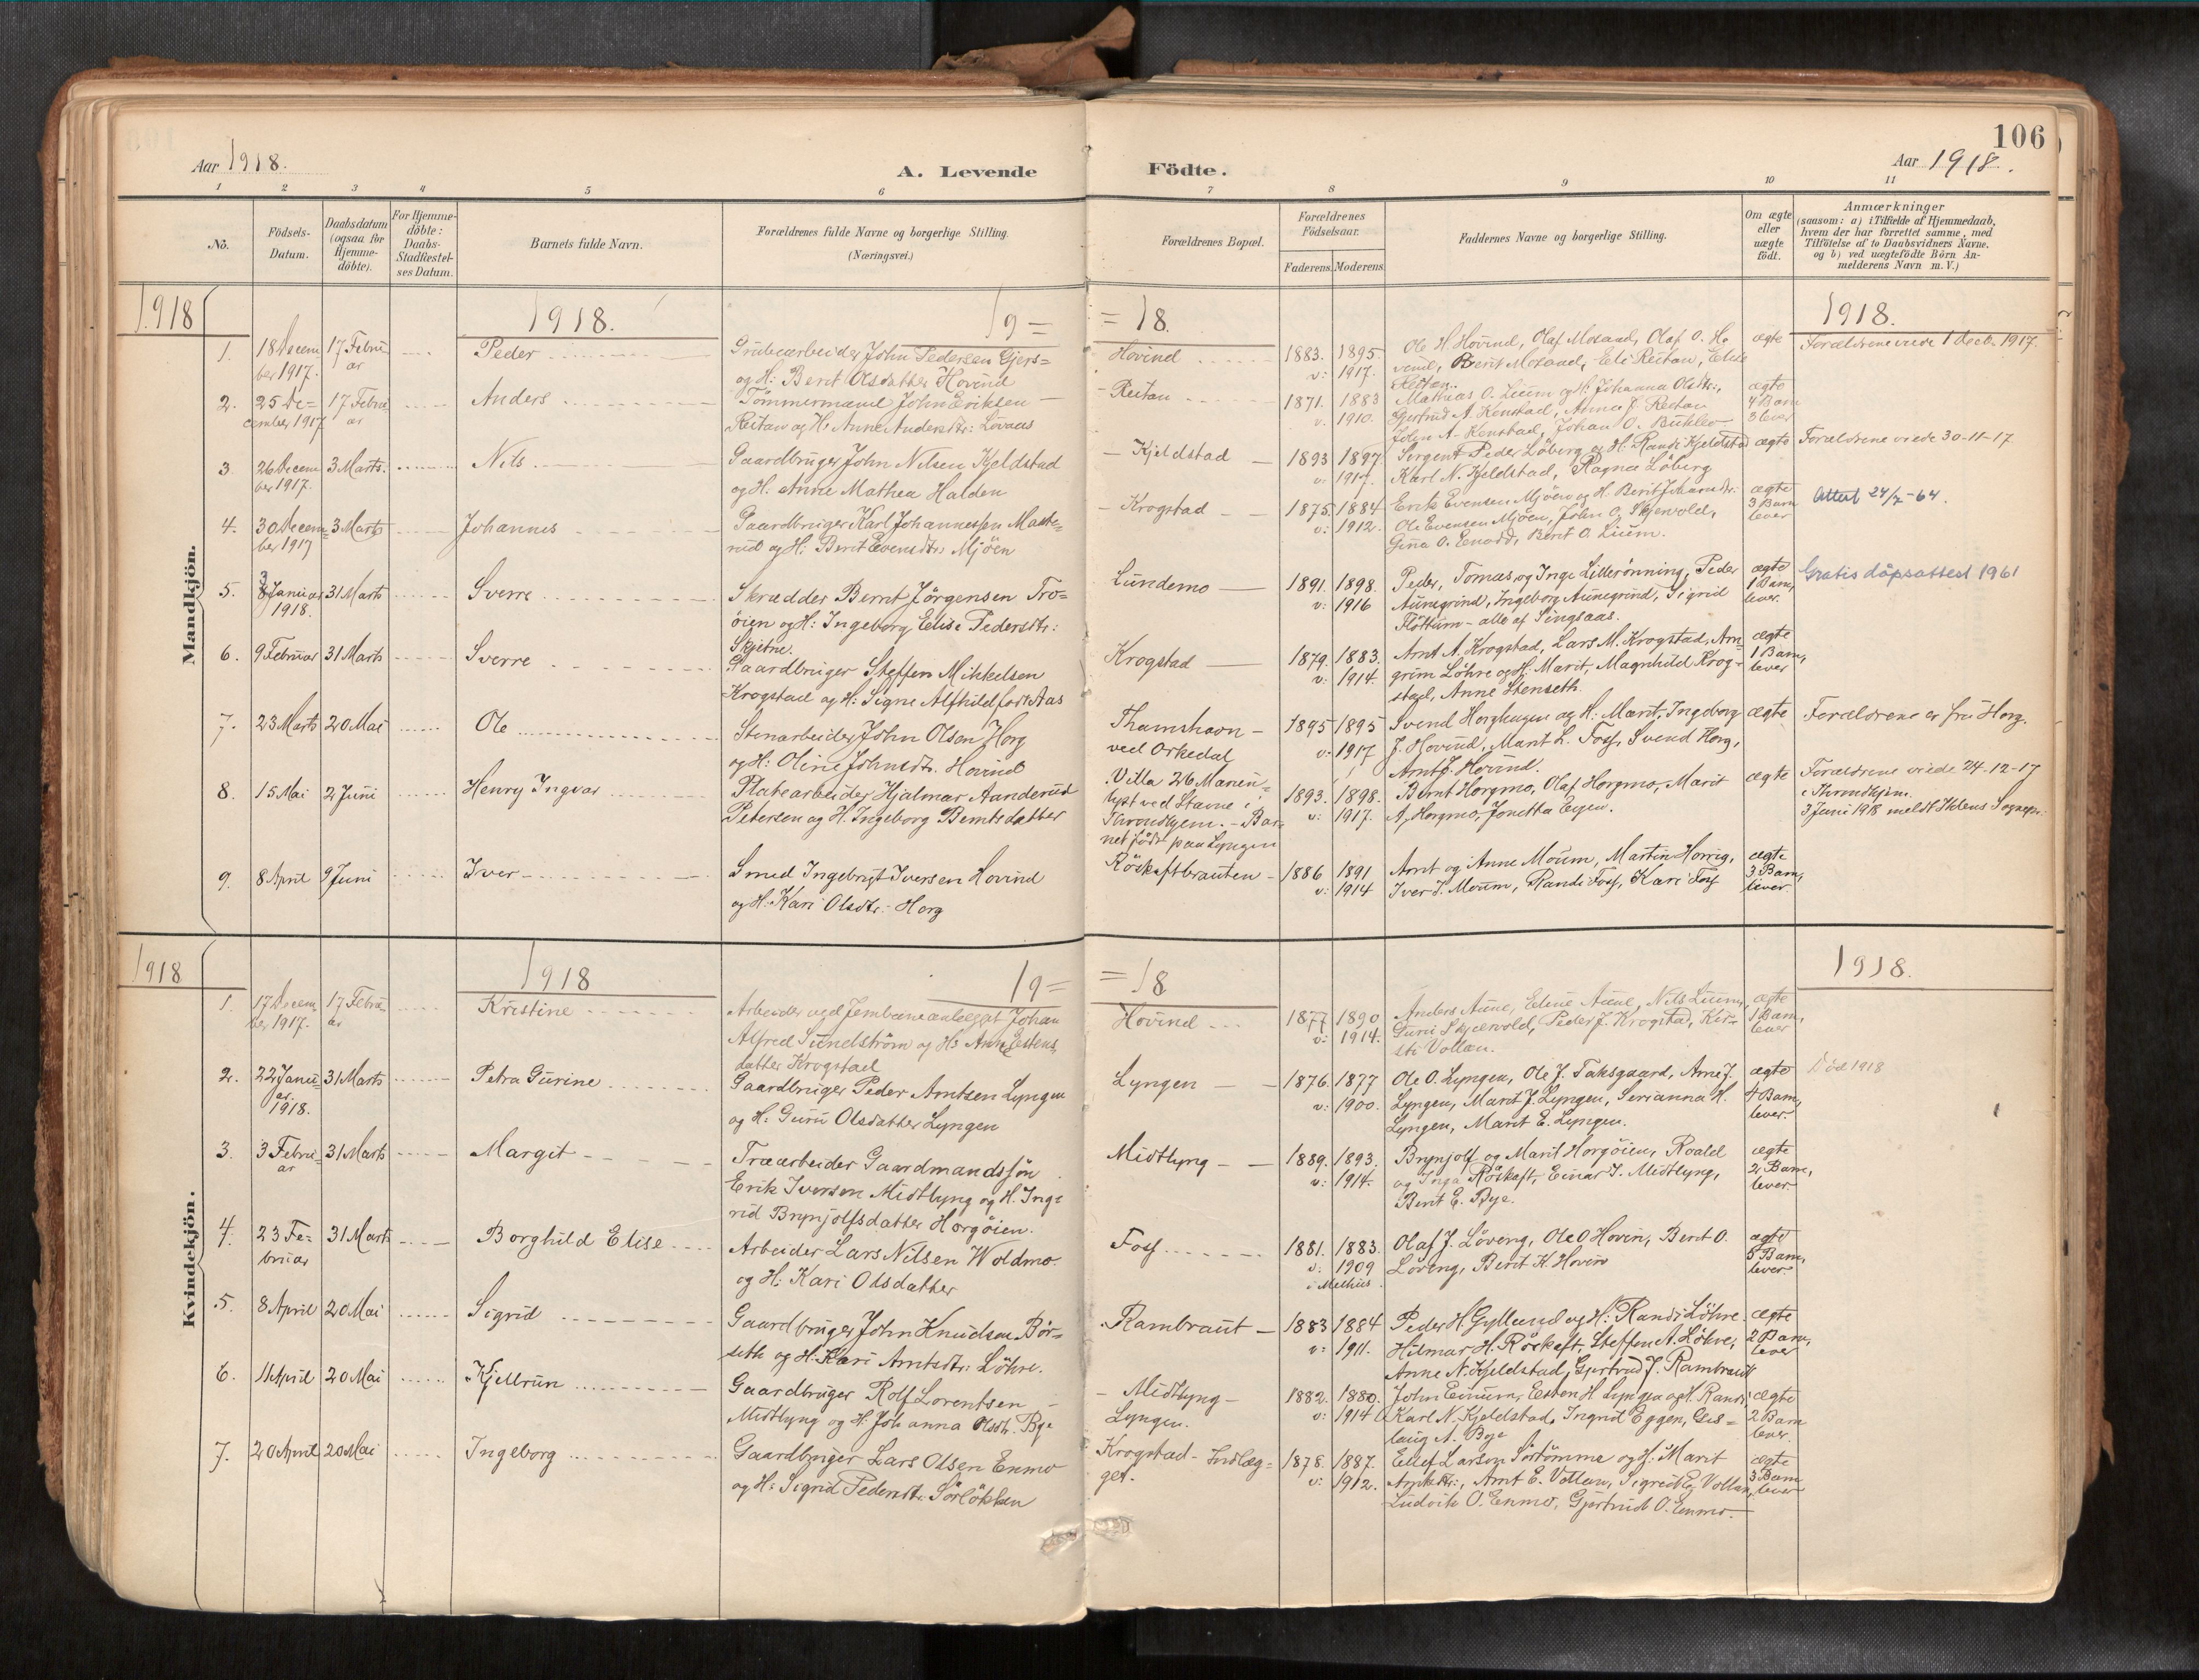 106
Aar 1918.
A. Levende
Födte.
Aar 1918.
1 2 3 4 5 6 7 8 9 10 11
No.
Födsels-
Datum.
Daabsdatum
(ogsaa for
Hjemme-
döbte).
For Hjemme-
döbte:
Daabs-
Stadfæstel-
ses Datum.
Barnets fulde Navn.
Forældrenes fulde Navne og borgerlige Stilling.
(Næringsvei.)
Forældrenes Bopæl.
Forældrenes
Födselsaar.
Faderens. Moderens.
Faddernes Navne og borgerlige Stilling.
Om ægte
eller
uægte
födt.
Anmærkninger
(saasom: a) i Tilfælde af Hjemmedaab,
hvem der har forrettet samme, med
Tilföielse af to Daabsvidners Navne.
og b) ved uægtefödte Börn An-
melderens Navn m. V.)
Mandkjön.
1918
1918.
19=
=18.
1918.
1.
18 Decem
ber 1917.
17 Febru
ar
Peder
Grubearbeider John Pedersen Gjers=
og H: Berit Olsdatter Hovind
Hovind
1883. 1895.
v: 1917.
Ole H Hovind, Olaf Moland, Olaf O. Ho
vind, Berit Moland, Eli Reitan, Elise
Reitan.
ægte
Forældrene viede 1 Decb. 1917.
2.
25 De=
cember 1917
17 Febru
ar
Anders
Tömmermand John Eriksen
Reitan og H: Anne Andersdtr: Lövaas
Reitan
1871. 1883
v. 1910.
Mathias O. Lium og H: Johanna Olsdtr:,
Gjertrud A. Kenstad, Anne J. Reitan
John A. Kenstad, Johan O. Bukleo
ægte
4 Barn
3 lever
3.
26 Decem
ber 1917.
3 Marts.
Nils
Gaardbruger John Nilsen Kjeldstad
og H: Anne Mathea Halden
Kjeldstad
1893 1897
v: 1917.
Sergent Peder Löberg og H: Randi Kjeldstad
Karl N. Kjeldstad, Ragna Löberg
ægte
Forældrene viede 30-11-17
4.
30 Decem=
ber 1917
3 Marts
Johannes
Gaardbruger Karl Johannessen Mæhle=
rud og H: Berit Evensdtr: Mjöen
Krogstad
1875. 1884
v: 1912.
Erik Evensen Mjöen og H. Berit Johansdtr:
Ole Evensen Mjöen, John O. Skjervold,
Gina O. Evodd, Berit O. Lium.
ægte
3 Barn
lever
Attest 24/7-64.
5.
3 Januar
1918.
31 Marts
Sverre
Skrædder Bernt Jörgensen Tro=
öien og H: Ingeborg Elise Pedersdtr:
Skjetne.
Lundemo
1891. 1898.
v: 1916
Peder, Tomas, og Inge Lillerönning, Peder
Aunegrind, Ingeborg Aunegrind, Sigrid
Flöttum - alle af Singsaas.
ægte
1 Barn,
lever.
Gratis dåpsattest 1961
6.
9 Februar
31 Marts
Sverre
Gaardbruger Steffen Mikkelsen
Krogstad og H: Signe Alfhild födt Aas
Krogstad
1879. 1883.
v: 1914.
Arnt A. Krogstad, Lars M. Krogstad, Arn=
grim Löhre og H: Marit, Magnhild Krog=
stad, Anne Stenseth.
ægte
1 Barn,
lever
7.
23 Marts
20 Mai
Ole
Stenarbeider John Olsen Horg
og H: Oline Johnsdtr. Hovind
Thamshavn
ved Orkedal
1895 1895
v: 1917
Svend Horghagen og H: Marit, Ingeborg
J. Hovind, Marit L. Foss, Svend Horg,
Arnt J. Hovind.
ægte
Forældrene er fra Horg.
8.
15 Mai
2 Juni
Henry Ingvar
Platearbeider Hjalmar Aanderud
Petersen og H. Ingeborg Berntsdatter
Villa 26 Marien=
lyst ved Stavne i
Throndhjem. - Bar=
net födt paa Lyngen
1893. 1898.
v: 1917.
Bernt Horgmo, Olaf Horgmo, Marit
A. Horgmo, Jonetta Eggen.
ægte
Forældrene viede 24-12-17
i Throndhjem.
3 Juni 1918 meldt Ihlens Sognepr.
9.
8 April
9 Juni
Iver
Smed Ingebrigt Iversen Hovind
og H: Kari Olsdtr: Horg
Röskaftbrauten
1886 1891
v: 1914
Arnt og Anne Moum, Martin Horrig,
Iver I. Moum, Randi Foss, Kari Foss
ægte
3 Barn,
lever.
Kvindekjön.
1918
1918
19=
=18
1918.
1.
17 Decem
ber 1917.
17 Febru=
ar
Kristine
Arbeider ved Jernbaneanlægget Johan
Alfred Sundström og H: Anne Estens
datter Krogstad
Hovind
1877 1890
v: 1914.
Anders Aune, Eline Aune, Nils Lium,
Guri Skjervold, Peder J. Krogstad, Kir=
sti Vollan.
ægte
1 Barn,
lever
2.
22 Janu=
ar.
1918.
31 Marts
Petra Gurine
Gaardbruger Peder Arntsen Lyngen
og H: Guru Olsdatter Lyngen
Lyngen
1876. 1877
v: 1900.
Ole O. Lyngen, Ole J. Faksgaard, Arne J.
Lyngen, Marit J. Lyngen, Serianna H.
Lyngen, Marit E. Lyngen.
ægte
4 Barn,
lever.
Död 1918
3.
3 Febru=
ar
31 Marts
Margit
Træarbeider Gaardmandssön
Erik Iversen Midtlyng og H. Ing=
rid Brynjolfsdatter Horgöien.
Midtlyng
1889. 1893.
v: 1914.
Brynjolf og Marit Horgöien, Roald
og Inga Röskaft, Einar I. Midtlyng,
Berit E. Bye.
ægte
2 Barn,
lever
4.
23 Fe=
bruar
31 Marts
Borghild Elise
Arbeider Lars Nilsen Woldmo
og H: Kari Olsdatter
Foss
1881. 1883.
v: 1909
i Melhus.
Olaf J. Löveng, Ole O Hovin, Berit O.
Löveng, Berit K. Hovin
ægte
5 Barn,
lever
5.
8 April
20 Mai
Sigrid
Gaardbruger John Knudsen Bör=
seth og H: Kari Arntsdtr: Löhre.
Rambraut
1883 1884
v: 1911.
Peder H. Gylland og H: Randi Löhre.
Hilmar H. Röskaft, Steffen A. Löhre,
Anne N. Kjeldstad, Gjertrud J. Rambraut
ægte
2 Barn,
lever
6.
11 April
20 Mai
Kjellrun
Gaardbruger Rolf Lorentsen
Midtlyng og H: Johanna Olsdtr. Bye
Midtlyng
Lyngen.
1882. 1880.
v: 1914
John Einum, Esten H. Lyngen og H. Randi,
Karl N. Kjeldstad, Ingrid Eggen, Gis=
laug A. Bye
ægte
2 Barn
lever.
7.
20 April
20 Mai
Ingeborg
Gaardbruger Lars Olsen Enmo
og H: Sigrid Pedersdtr. Sörlökken
Krogstad - Indlæg=
get.
1878. 1887.
v: 1912.
Ellef Larsen Sörtömme og H: Marit
Arntsdtr:, Arnt E. Vollan, Sigrid Vollan,
Ludvik O. Enmo, Gjertrud O. Enmo.
ægte
3 Barn
lever